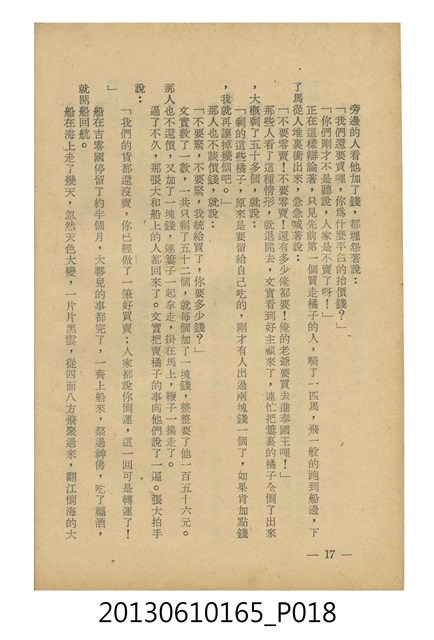 旁邊的人看他加了錢，都埋怨著說：
「我們還要買哩，你為什麼平白的抬價錢？」
「你們剛才不是聽說，人家是不賣了呀！」
正在這樣辯論著，只見先前第一個買走橘子的人，騎了一匹馬，飛一般的跑到船邊，下
了馬從人堆裏衝出來，急急喊著說：
「不要零賣！不要零賣！還有多少俺都要！俺的老爺要買去進奉國王哩！」
那些人看了這種情形，就退開去，文實看到好主顧來了，連忙把簍裏的橘子全倒了出來
，大概剩了五十多個，就說：
「剩的這些橘子，原來是要留給自己吃的，剛才有人出過兩塊錢一個了，如果肯加點錢
，我就再讓掉幾個吧。」
那人也不談價錢，就說：
「不要緊，不要緊，我統給買了，你要多少錢？」
文實數了一數，一共只剩了五十二個，就每個加了一塊錢，整整要了他一百五十六元。
那人也不還價，又加了一塊錢，連簍子一起拿走，掛在馬上，鞭子一揚走了。
過了不久，那張大和船上的人都回來了。文實把賣橘子的事向他們說了一遍。張大拍手
說：
「我們的貨都還沒賣，你已經做了一筆好買賣；人家都說你倒運，這一回可是轉運了！
」
船在吉零國停留了約半個月，大夥兒的事都完了，一齊上船來，祭過神佛，吃了福酒，
就開船回航。
船在海上走了幾天，忽然天色大變，一片片黑雲，從四面八方飛來過來，翻江倒海的大
— 17 —
20130610165_P018